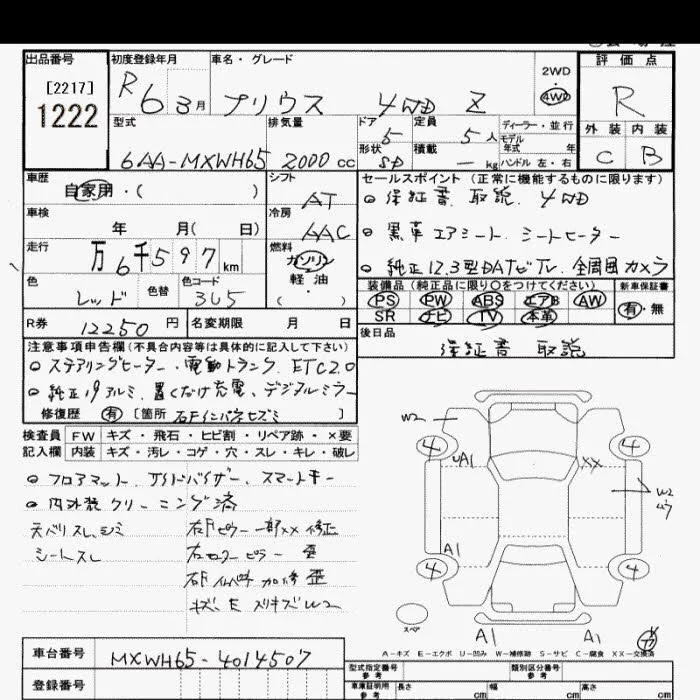 出品番号
[2217]
1222
初度登録年月
R 6 3月
車名・グレード
プリウス 4WD Z
2WD
・
4WD
評価点
R
外装 内装
C B
型式
6AA-MXWH65
排気量
2000 cc
ドア
5
定員
5人
形状
積載
- kg
ディーラー・並行
モデル
年式 年
ハンドル 左・右
車歴
自家用・( )
シフト
AT
車検
年 月( 日)
冷房
AAC
走行
万6千597km
燃料
ガソリン
軽油
・
( )
色
レッド
色替
色コード
3U5
R券
12250円
名変期限 月 日
セールスポイント(正常に機能するものに限ります)
保証書 取説 4WD
黒革エアシート、シートヒーター
純正12.3型DAナビTV、全周囲カメラ
装備品(純正品に限り○をつけてください)
新車保証書
PS PW ABS エアB AW
SR ナビ TV 本革
有・無
後日品
保証書 取説
注意事項申告欄(不具合内容等は具体的に記入して下さい)
ステアリングヒーター・電動トランク、ETC2.0
純正19アルミ、置くだけ充電、デジタルミラー
修復歴 有 [箇所 右Fインパネセズミ ]
検査員
記入欄
FW キズ・飛石・ヒビ割・リペア跡・×要
内装 キズ・汚レ・コゲ・穴・スレ・キレ・破レ
フロアマット、サイドバイザー、スマートキー
内外装クリーニング済
天バリスレ、シミ
シートスレ
右Fピラー一部××修正
右センターピラー 歪
加修歪
キズ、E スリキズW2
W2
4
4
UA1
××
W2
A1
4
4
スペア
A1
A1
A-キズ E-エクボ U-凹み W-補修跡 S-サビ C-腐食 XX-交換済
車台番号
MXWH65-4014507
登録番号
型式指定番号
参考
類別区分番号
参考
車庫証明用
参考
長さ cm
幅 cm
高さ cm